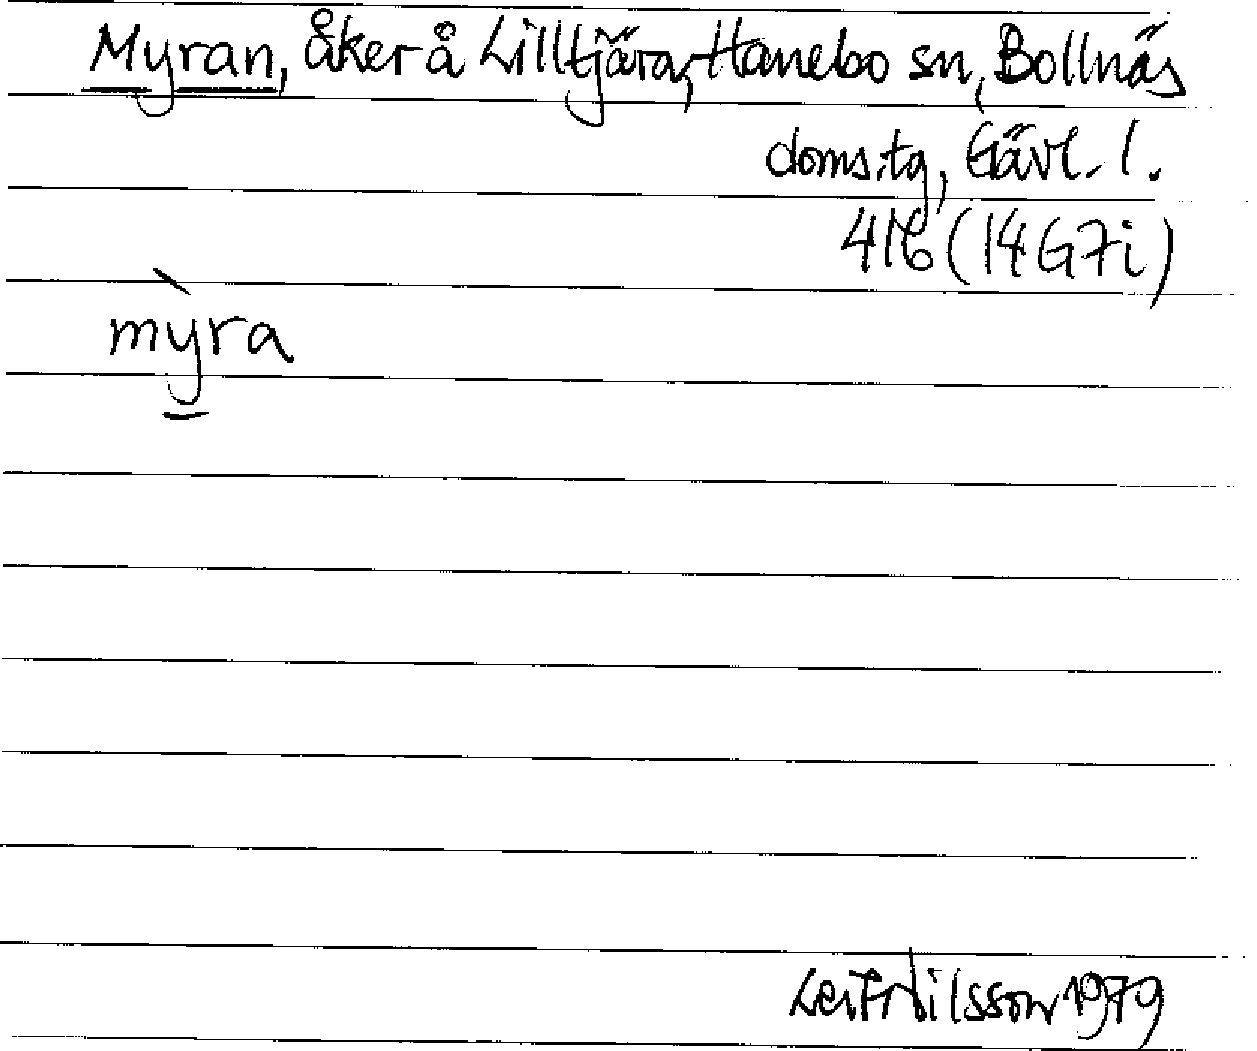 Myran, åker å Lilltjära, Hanebo sn, Bollnäs
doms.tg, Gävl. l.
416 (14G7i)
mỳra
Leif Nilsson 1979